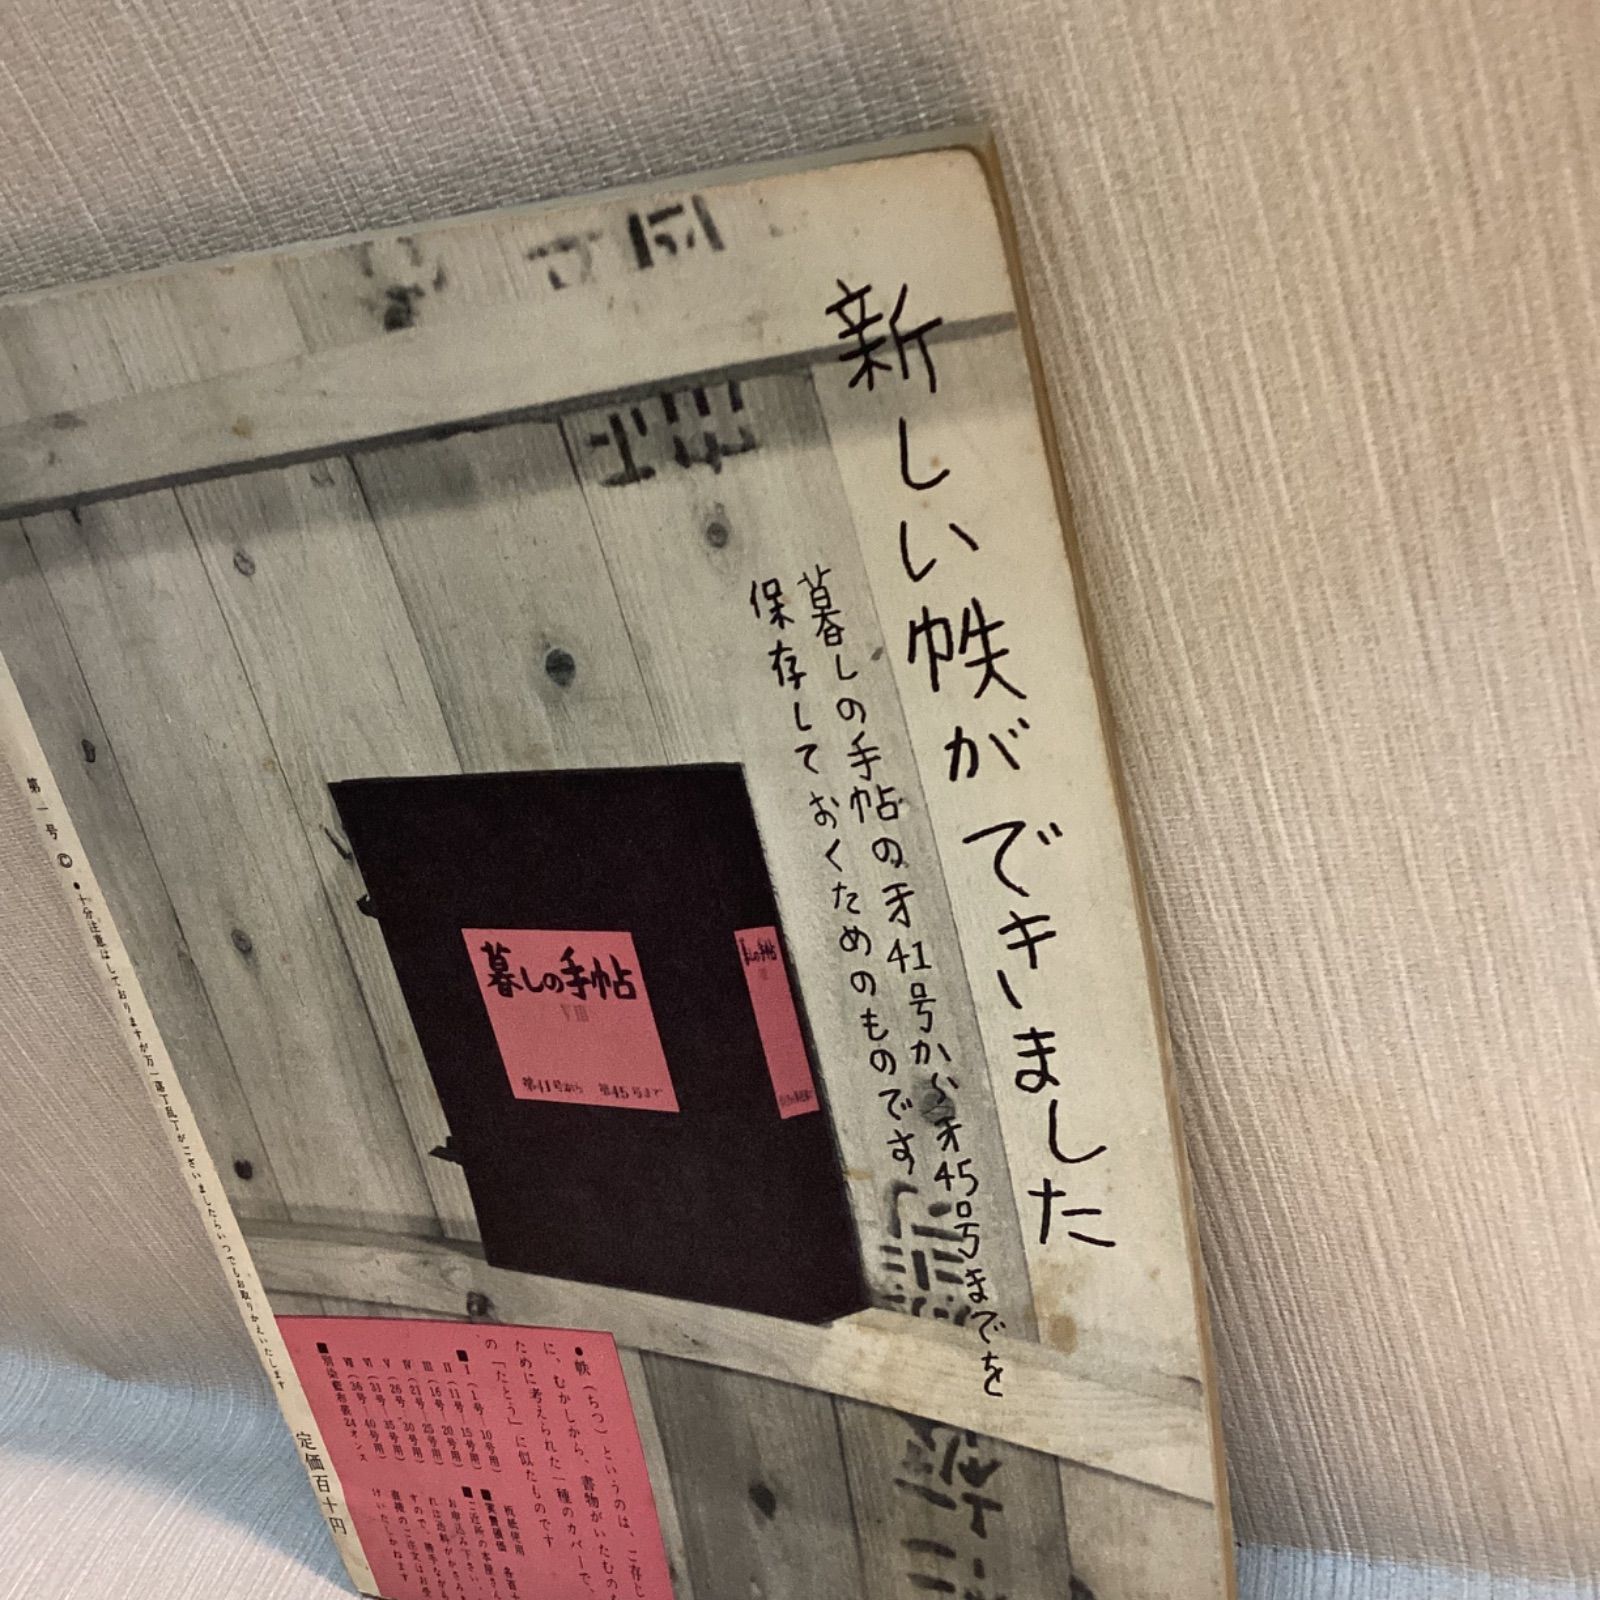 新しい帙ができました
暮しの手帖の第41号から第45号までを
保存しておくためのものです
暮しの手帖
VIII
第41号から 第45号まで
暮しの手帖
●帙(ちつ)というのは、ご存じ
に、むかしから、書物がいたむの
ために考えられた一種のカバーで、
の「たとう」に似たものです
■I(1号―10号用)
II(11号―15号用)
III(16号―20号用)
IV(21号―25号用)
V(26号―30号用)
VI(31号―35号用)
VII(36号―40号用)
■別染藍布装24オンス
板紙使用
■実費頒価 各百
■ご近所の本屋さん
お申込み下さい
れは送料がかさみま
すので、勝手ながら
直接のご注文はお受
けいたしかねます
第一号©●十分注意はしておりますが万一落丁乱丁がございましたらいつでもお取りかえいたします
定価百十円